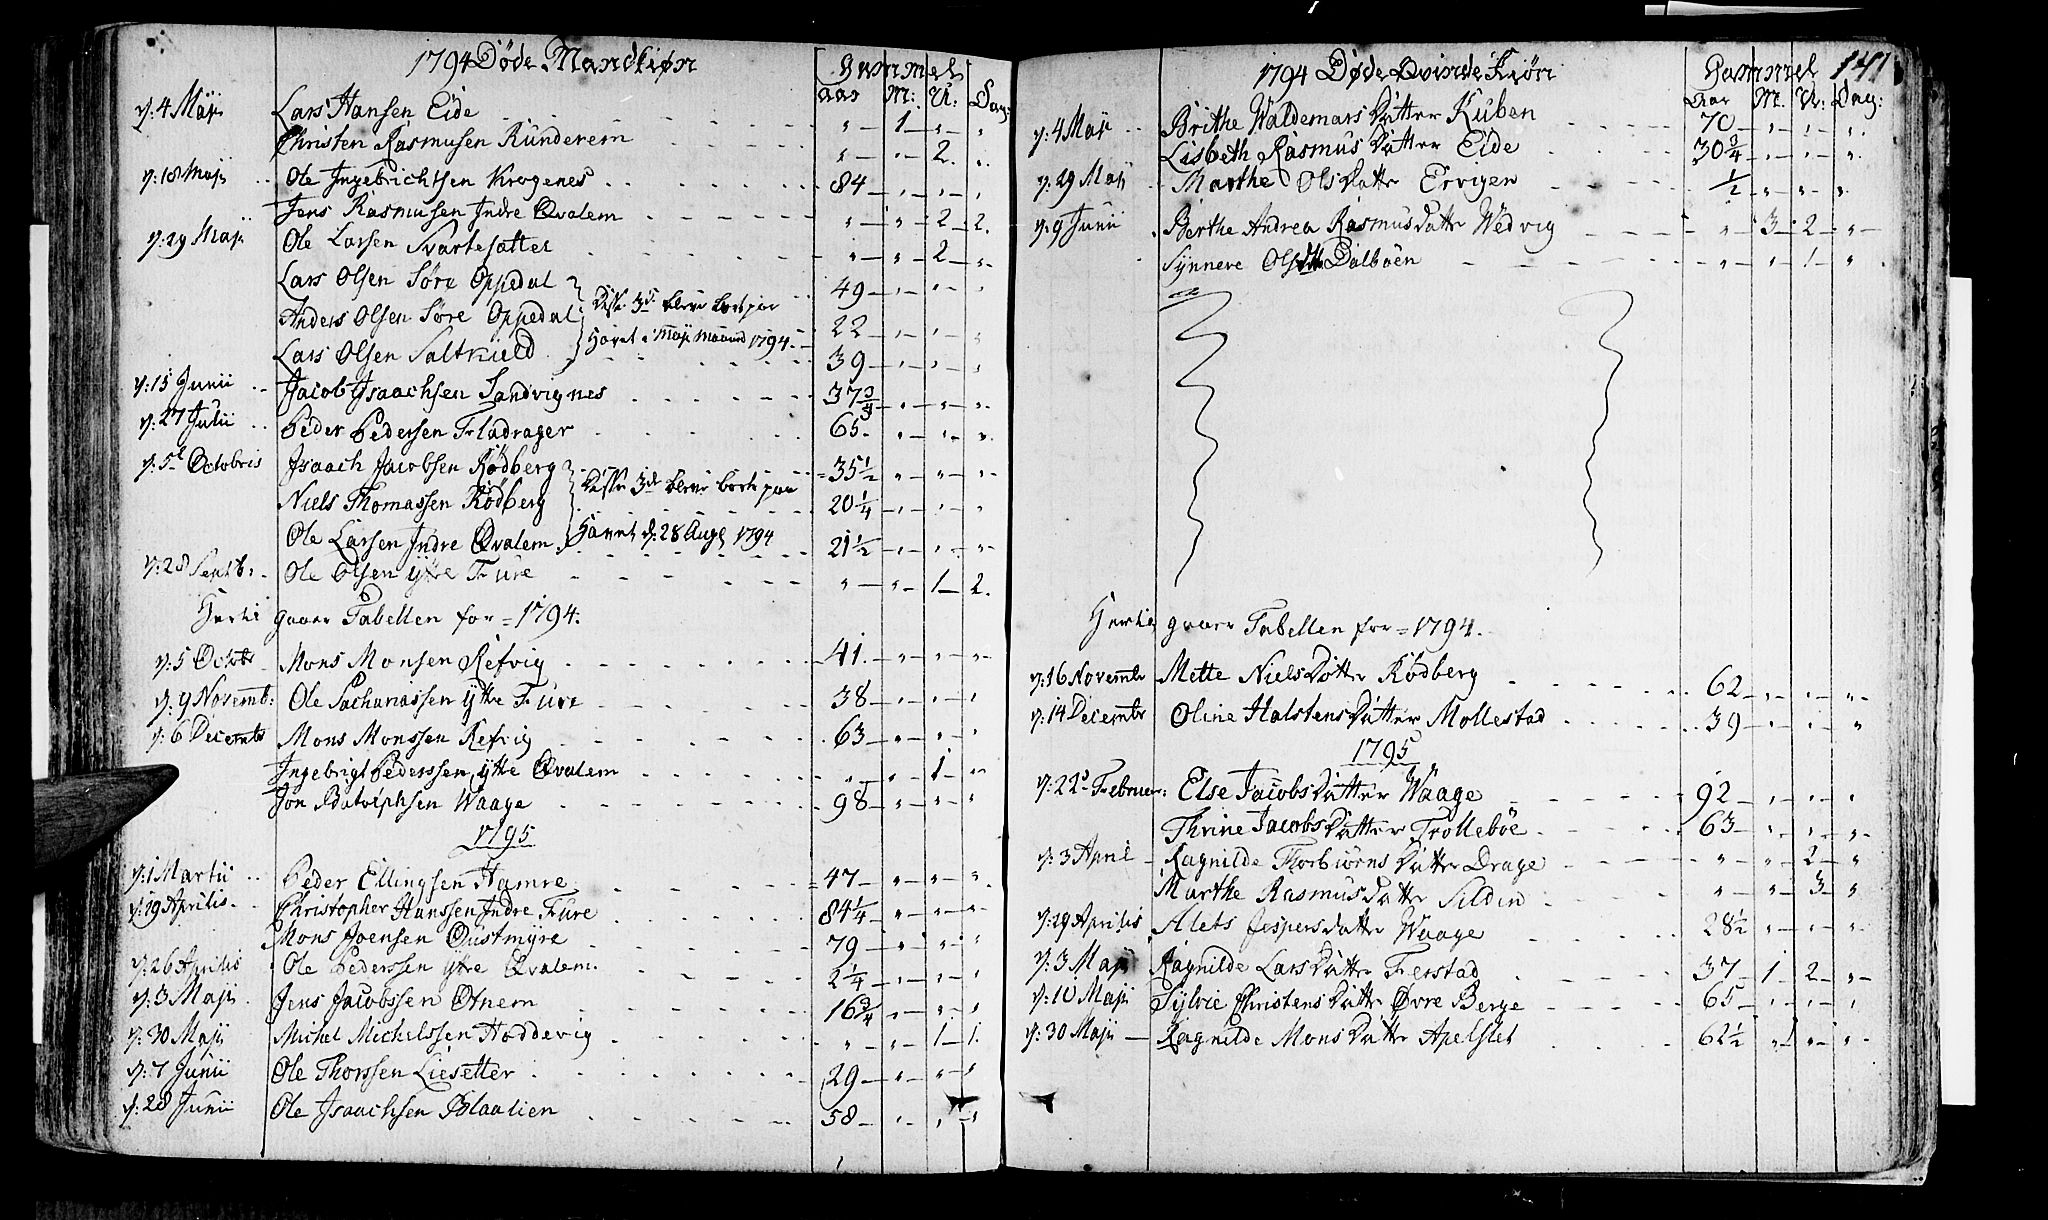 1794 Døde Mandkiøn
Gammel
Aar M: U: Dag:
d: 4 Maji Lars Hansen Eide " 1 " "
Christen Rasmusen Runderem " " 2. "
d: 18 Maji Ole Ingebrichtsen Krogenes 84 " " "
Jens Rasmusen Indre Qvalem " " 2 2.
d: 29 Maji Ole Larsen Svartesætter " " 2 "
Lars Olsen Søre Oppedal 49 " " "
Disse 3de bleve bort paa
Anders Olsen Søre Oppedal 22 " " "
Havet i Maji Maaned 1794.
Lars Olsen Saltkield 39 " " "
d: 15 Junii Jacob Isaachsen Sandvignes 37 3/4 " " "
d: 27 Julii Peder Pedersen Fladrager 65. " " "
d: 5te Octobris Isaach Jacobsen Rødberg 35 1/2 " " "
Disse 3de bleve borte paa
Niels Thomassen Rødberg 20 1/4 " " "
Ole Larsen Indre Qvalem 21 1/2 " " "
Havet d: 28 Aug 1794
d: 28 Septb: Ole Olsen Ytre Fure " " 1 2.
Hertil gaaer Tabellen for 1794.
d: 5 Octobr Mons Monsen Refvig 41. " " "
d: 9 Novemb: Ole Sachariassen Ytre Fure 38 " " "
d: 6 Decembr Mons Monssen Refvig 63 " " "
Ingebrigt Pederssen Ytre Qvalem " " 1 "
Jon Waage 98 " " "
1795
d: 1 Martii Peder Ellingsen Hamre 47 " " "
d: 19 Aprilis Christopher Hanssen Indre Fure 84 1/4 " " "
Mons Joensen Oustmyre 79 " " "
d: 26 Aprilis Ole Pederssen Ytre Qvalem 2 1/4 " " "
d: 3 Maji Jens Jacobssen Otnem 16 3/4 " " "
d: 30 Maji Michel Michelssen Hoddevig " " 1 1.
d: 7 Junii Ole Thorssen Liesetter 29 " " "
d: 28 Junii Ole Isaachsen Blaalien 58 " " "
1794 Døde Qvinde Kiøn
Gammel 141
Aar M. U: Dag:
d: 4 Maji Brithe Waldemars Datter Kuben 70 " " "
Lisbeth Rasmus Datter Eide 30 3/4 " " "
d: 29 Maji Marthe Ols Datter Ervigen 1/2 " " "
d: 9 Junii Berthe Andrea Rasmusdatter Wedvig " 3 2 "
Synneve Ols Dalbøen " " 1 "
Hertil gaaer Tabellen for 1794.
d: 16 Novembr Mette Niels Datter Rødberg 62 " " "
d: 14 Decembr Oline Halstens Datter Mollestad 39 " " "
1795
d: 22 Februar: Else Jacobs Datter Waage 92 " " "
Thrine Jacobs Datter Trollebøe 63 " " "
d: 3 April Ragnilde Thorbiørns Datter Drage " " 2 "
Marthe Rasmus Datter Sildin " " 3 "
d: 29 Aprilis Alets Jespersdatter Waage 28 1/2 " " "
d: 3 Maji Ragnilde Lars Datter Ferstad 37 1 2 "
d: 10 Maji Sylvie Christens Datter Øvre Berge 65 " " "
d: 30 Maji Ragnilde Mons Datter Apelset 62 1/2 " " "